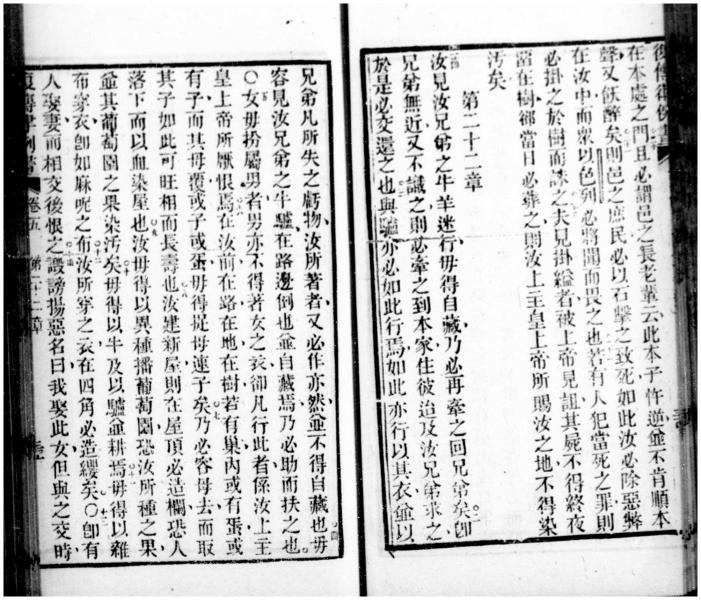 復傳律例書
在本處之門且必謂邑之長老輩云此本子忤逆並不肯順本
聲又飫醉矣則邑之庶民必以石擊之致死如此汝必除惡弊
在汝中而衆以色列必將聞而畏之也若有人犯當死之罪則
必掛之於樹而誅之夫見掛縊者被上帝見詛其屍不得終夜
留在樹鄉當日必葬之閉汝上主皇上帝所賜汝之地不得染
汚矣
第二十二章
汝見汝兄弟之牛羊迷行毋得自藏乃必再牽之回兄弟矣卽
兄弟無近又不識之則必牽之到本家住彼迨及汝兄弟求之
於是必交還之也與驢亦必如此行焉如此亦行以其衣並以
兄弟凡所失之虧物汝所著者又必作亦然並不得自藏也毋
容見汝兄弟之牛驢在路邊倒也並自藏焉乃必助而扶之也
○女毋扮屬男者男亦不得著女之衣卻凡行此者係汝上主
皇上帝所厭恨焉在汝前在路在地在樹若有巢內或有蛋或
有子而其母覆或子或蛋毋得捉母連子矣乃必容母去而取
其子如此可旺相而長壽也汝建新屋則在屋頂必造欄恐人
落下而以血染屋也汝毋得以異種播葡萄園恐汝所種之果
並其葡萄園之果染汚矣毋得以牛及以驢並耕焉毋得以雜
布穿衣卽如麻呢之布汝所穿之衣在四角必造纓矣○卽有
人娶妻而相交後恨之譭謗揚惡名曰我娶此女但與之交時
復傳律例書 卷五 第二十二章